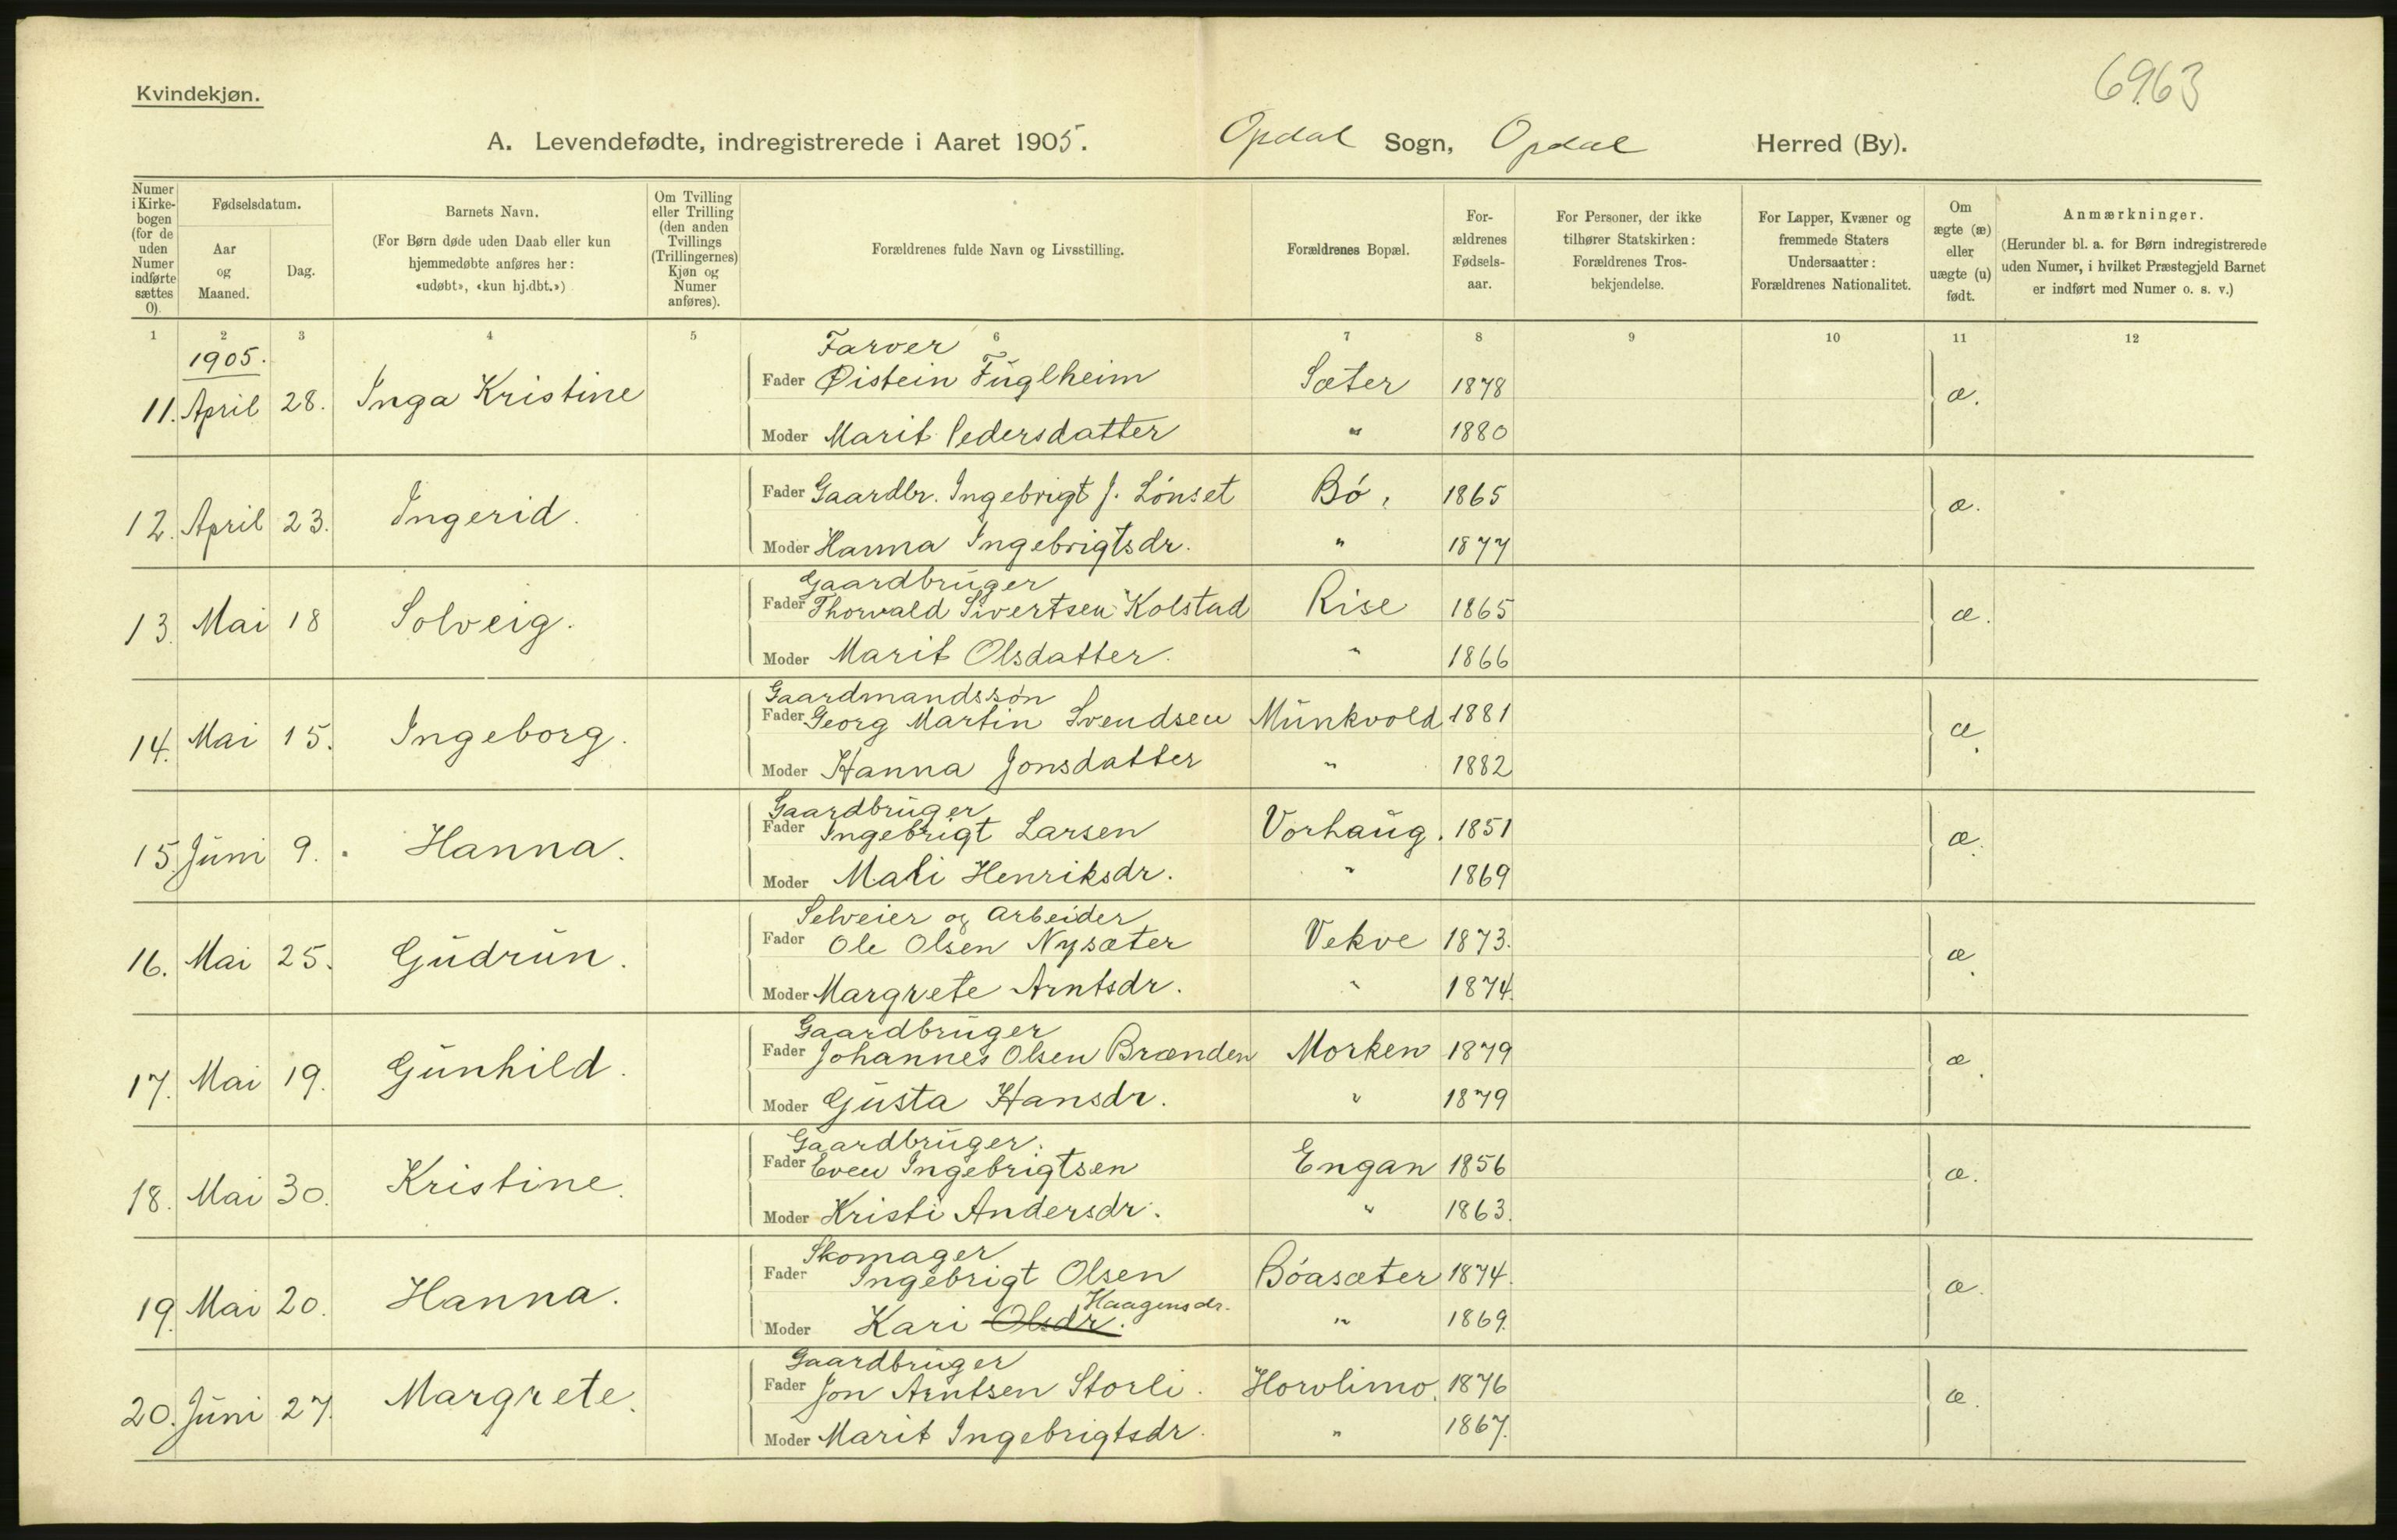 6963
Kvindekjøn.
A. Levendefødte, indregistrerede i Aaret 1905. Opdal Sogn, Opdal Herred (By).
Numer i Kirkebogen (for de uden Numer indførte sættes 0).
Fødselsdatum.
Aar og Maaned.
Dag.
Barnets Navn.
(For Børn døde uden Daab eller kun hjemmedøbte anføres her: «udøbt», «kun hj.dbt.»)
Om Tvilling eller Trilling (den anden Tvillings (Trillingernes) Kjøn og Numer anføres).
Forældrenes fulde Navn og Livsstilling.
Forældrenes Bopæl.
For-ældrenes Fødsels-aar.
For Personer, der ikke tilhører Statskirken: Forældrenes Tros-bekjendelse.
For Lapper, Kvæner og fremmede Staters Undersaatter: Forældrenes Nationalitet.
Om ægte (æ) eller uægte (u) født.
Anmærkninger.
(Herunder bl. a. for Børn indregistrerede uden Numer, i hvilket Præstegjeld Barnet er indført med Numer o. s. v.)
1 2 3 4 5 6 7 8 9 10 11 12
1905.
Farver
11. April 28. Inga Kristine Fader Øistein Fuglheim Sæter 1878 æ.
Moder Marit Pedersdatter " 1880
12. April 23. Ingerid. Fader Gaardbr. Ingebrigt J. Lønset Bø, 1865 æ.
Moder Hanna Ingebrigtsdr. " 1877
Gaardbruger
13. Mai 18 Solveig. Fader Thorvald Sivertsen Kolstad Rise 1865 æ.
Moder Marit Olsdatter. " 1866
Gaardmandssøn
14. Mai 15. Ingeborg. Fader Georg Martin Svendsen Munkvold 1881 æ.
Moder Hanna Jonsdatter " 1882
Gaardbruger
15. Juni 9. Hanna. Fader Ingebrigt Larsen Vorhaug. 1851 æ.
Moder Mali Henriksdr. " 1869
Selveier og Arbeider
16. Mai 25. Gudrun. Fader Ole Olsen Nysæter Vekve 1873. æ.
Moder Margrete Arntsdr. " 1874.
Gaardbruger
17. Mai 19. Gunhild. Fader Johannes Olsen Brænden Morken 1879 æ.
Moder Gusta Hansdr. " 1879
Gaardbruger.
18. Mai 30. Kristine. Fader Even Ingebrigtsen Engan 1856 æ.
Moder Kristi Andersdr. " 1863.
Skomager
19. Mai 20. Hanna. Fader Ingebrigt Olsen Bøasæter 1874. æ.
Haagensdr.
Moder Kari Olsdr. " 1869.
Gaardbruger
20. Juni 27. Margrete. Fader Jon Arntsen Storli. Horvlimo. 1876 æ.
Moder Marit Ingebrigtsdr. " 1867.